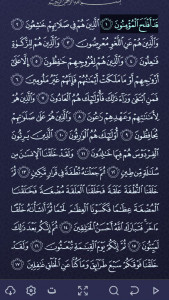 قَدۡ أَفۡلَحَ ٱلۡمُؤۡمِنُونَ ١ ٱلَّذِينَ هُمۡ فِي صَلَاتِهِمۡ خَٰشِعُونَ ٢
وَٱلَّذِينَ هُمۡ عَنِ ٱللَّغۡوِ مُعۡرِضُونَ ٣ وَٱلَّذِينَ هُمۡ لِلزَّكَوٰةِ
فَٰعِلُونَ ٤ وَٱلَّذِينَ هُمۡ لِفُرُوجِهِمۡ حَٰفِظُونَ ٥ إِلَّا عَلَىٰٓ
أَزۡوَٰجِهِمۡ أَوۡ مَا مَلَكَتۡ أَيۡمَٰنُهُمۡ فَإِنَّهُمۡ غَيۡرُ مَلُومِينَ ٦
فَمَنِ ٱبۡتَغَىٰ وَرَآءَ ذَٰلِكَ فَأُوْلَٰٓئِكَ هُمُ ٱلۡعَادُونَ ٧ وَٱلَّذِينَ هُمۡ
لِأَمَٰنَٰتِهِمۡ وَعَهۡدِهِمۡ رَٰعُونَ ٨ وَٱلَّذِينَ هُمۡ عَلَىٰ صَلَوَٰتِهِمۡ
يُحَافِظُونَ ٩ أُوْلَٰٓئِكَ هُمُ ٱلۡوَٰرِثُونَ ١٠ ٱلَّذِينَ يَرِثُونَ
ٱلۡفِرۡدَوۡسَ هُمۡ فِيهَا خَٰلِدُونَ ١١ وَلَقَدۡ خَلَقۡنَا ٱلۡإِنسَٰنَ مِن
سُلَٰلَةٖ مِّن طِينٖ ١٢ ثُمَّ جَعَلۡنَٰهُ نُطۡفَةٗ فِي قَرَارٖ مَّكِينٖ ١٣ ثُمَّ
خَلَقۡنَا ٱلنُّطۡفَةَ عَلَقَةٗ فَخَلَقۡنَا ٱلۡعَلَقَةَ مُضۡغَةٗ فَخَلَقۡنَا
ٱلۡمُضۡغَةَ عِظَٰمٗا فَكَسَوۡنَا ٱلۡعِظَٰمَ لَحۡمٗا ثُمَّ أَنشَأۡنَٰهُ خَلۡقًا
ءَاخَرَۚ فَتَبَارَكَ ٱللَّهُ أَحۡسَنُ ٱلۡخَٰلِقِينَ ١٤ ثُمَّ إِنَّكُم بَعۡدَ ذَٰلِكَ
لَمَيِّتُونَ ١٥ ثُمَّ إِنَّكُمۡ يَوۡمَ ٱلۡقِيَٰمَةِ تُبۡعَثُونَ ١٦ وَلَقَدۡ
خَلَقۡنَا فَوۡقَكُمۡ سَبۡعَ طَرَآئِقَ وَمَا كُنَّا عَنِ ٱلۡخَلۡقِ غَٰفِلِينَ ١٧